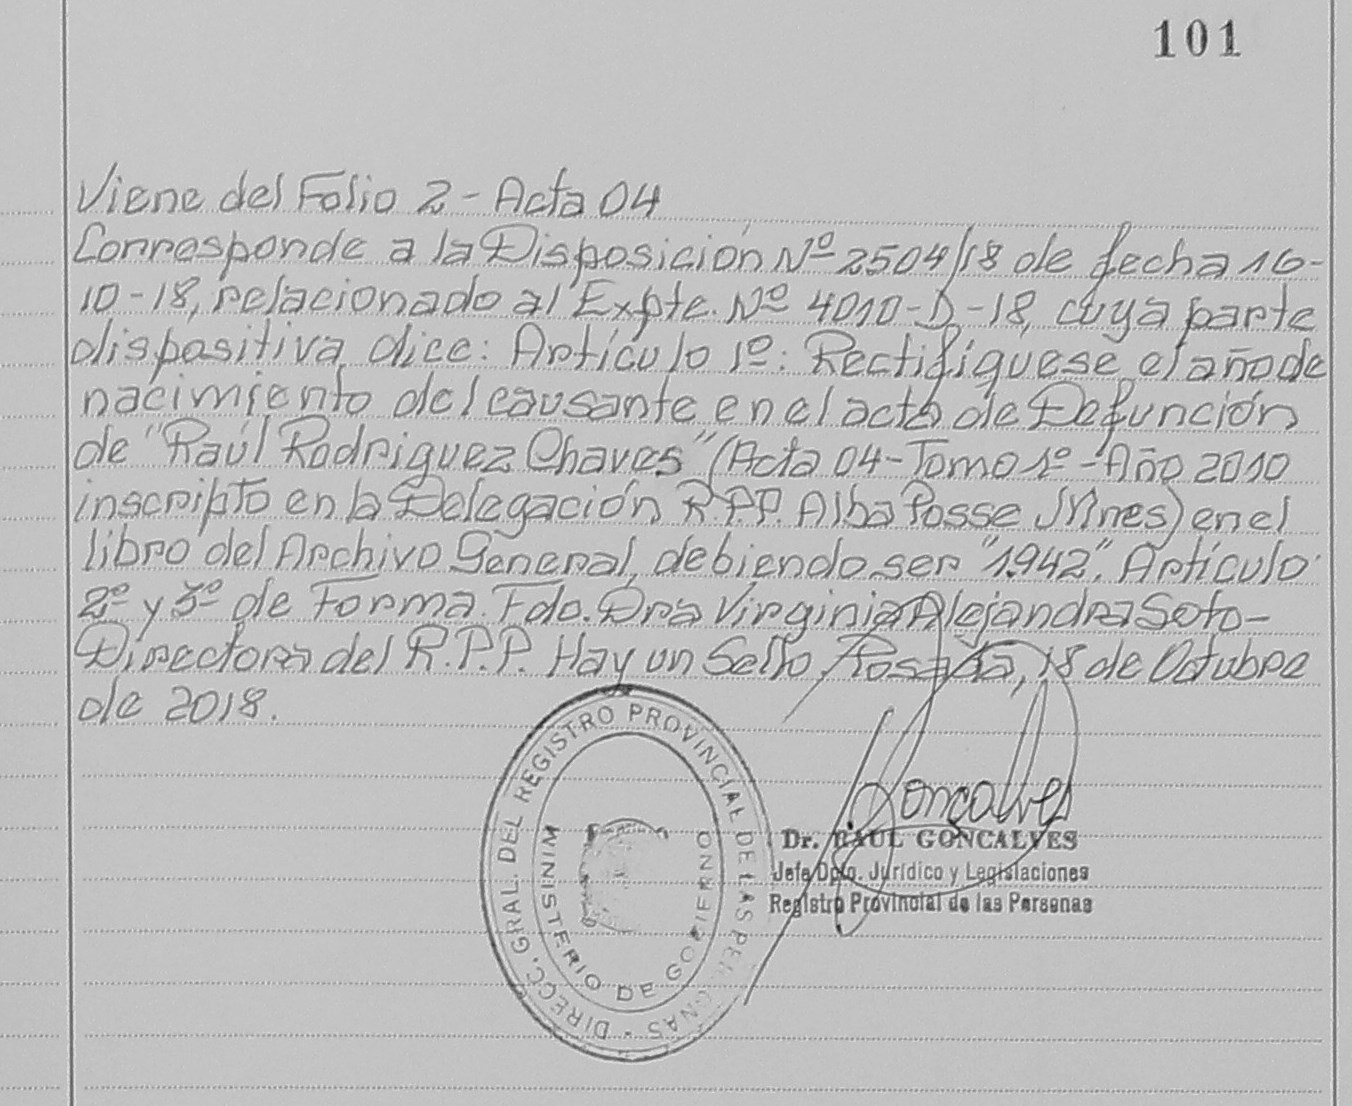 101
Viene del Folio 2 - Acta 04
Corresponde a la Disposición Nº 2504/18 de fecha 16-
10-18, relacionado al Expte. Nº 4010-D-18, cuya parte
dispositiva dice: Artículo 1º: Rectifíquese el año de
nacimiento del causante en el acta de Defunción
de "Raúl Rodriguez Chaves" (Acta 04-Tomo 1º-Año 2010
inscripto en la Delegación R.P.P. Alba Posse Mnes) en el
libro del Archivo General, debiendo ser "1.942". Artículo
2º y 3º de Forma. Fdo. Dra Virginia Alejandra Soto-
Directora del R.P.P. Hay un Sello. Posadas, 18 de Octubre
de 2018.
DIRECC. GRAL. DEL REGISTRO PROVINCIAL DE LAS PERSONAS
MINISTERIO DE GOBIERNO
Goncalves
Dr. RAUL GONCALVES
Jefe Dpto. Jurídico y Legislaciones
Registro Provincial de las Personas